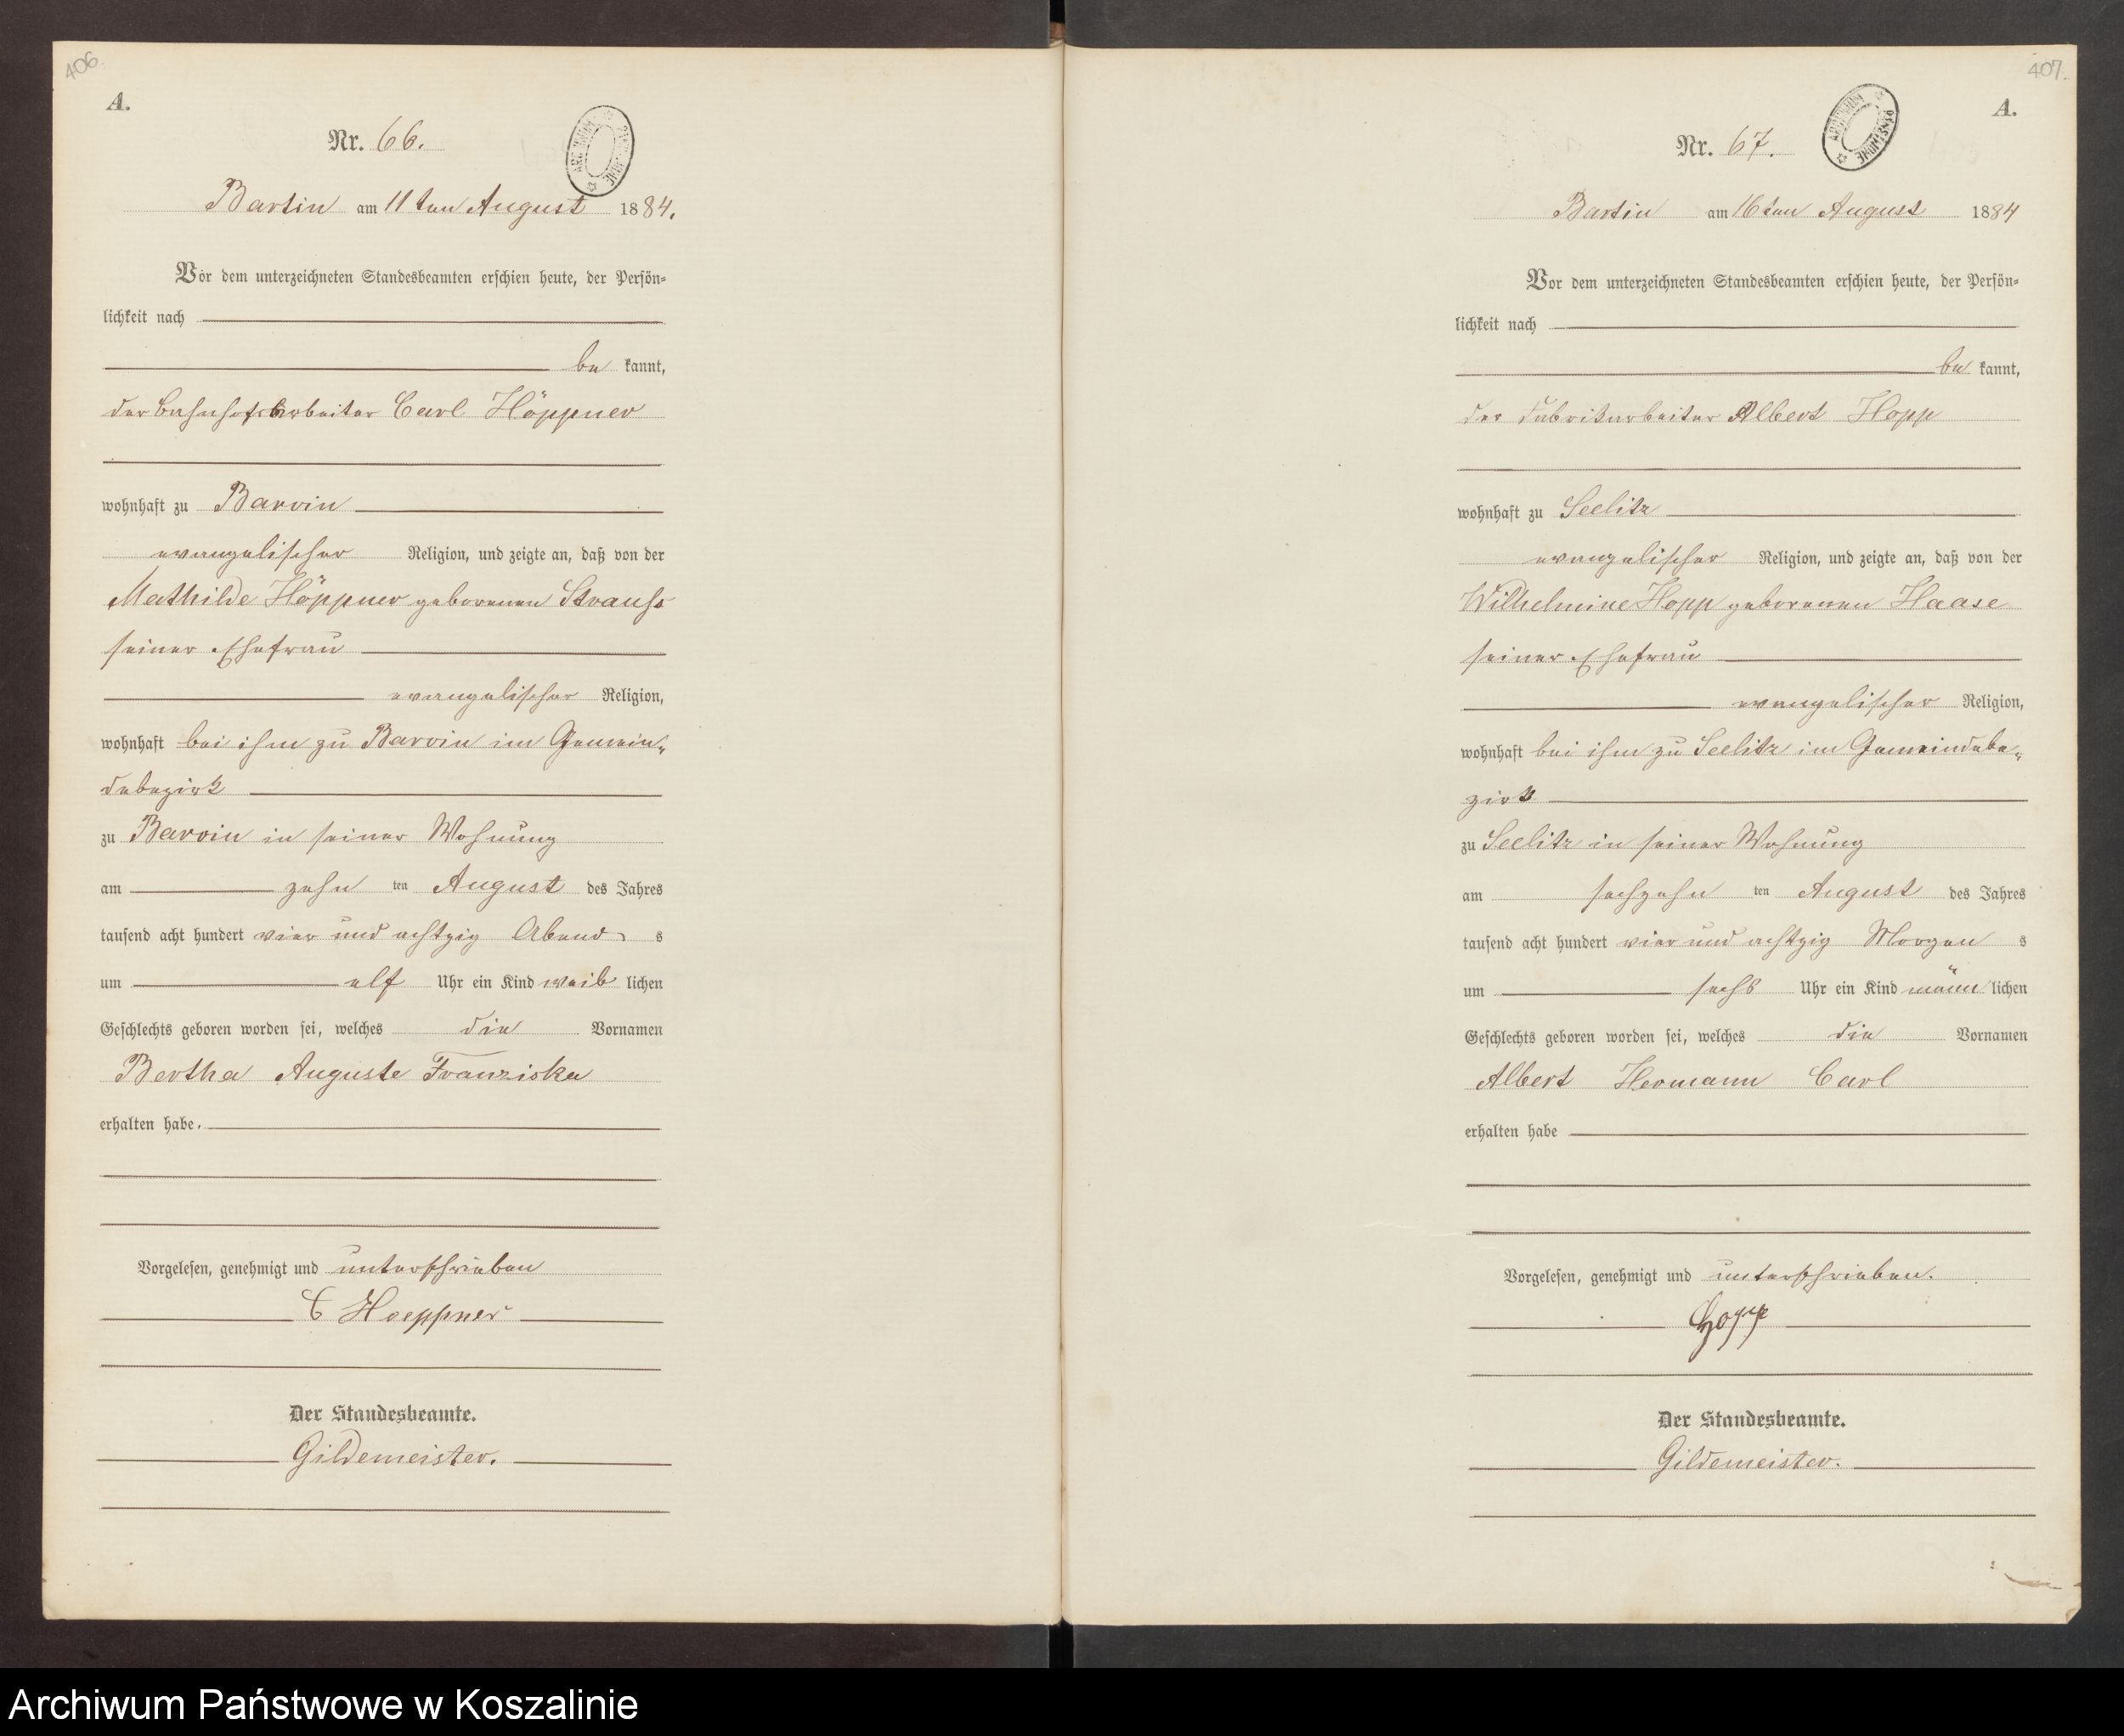 406.
A.
Nr. 66.
Bartin am 11ten August 1884.
Vor dem unterzeichneten Standesbeamten erschien heute, der Persön=
lichkeit nach
be kannt,
der Bahnhofsarbeiter Carl Höppner
wohnhaft zu Barvin
evangelischer Religion, und zeigte an, daß von der
Mathilde Höppner geborenen Strauss
seiner Ehefrau
evangelischer Religion,
wohnhaft bei ihm zu Barvin im Gemein=
debezirk
zu Barvin in seiner Wohnung
am zehn ten August des Jahres
tausend acht hundert vier und achtzig Abend s
um elf Uhr ein Kind weib lichen
Geschlechts geboren worden sei, welches die Vornamen
Bertha Auguste Franziska
erhalten habe.
Vorgelesen, genehmigt und unterschrieben
C Hoeppner
Der Standesbeamte.
Gildemeister.
407.
A.
Nr. 67.
Bartin am 16ten August 1884
Vor dem unterzeichneten Standesbeamten erschien heute, der Persön=
lichkeit nach
be kannt,
der Fabrikarbeiter Albert Hopp
wohnhaft zu Seelitz
evangelischer Religion, und zeigte an, daß von der
Wilhelmine Hopp geborenen Haase
seiner Ehefrau
evangelischer Religion,
wohnhaft bei ihm zu Seelitz im Gemeindebe=
zirk
zu Seelitz in seiner Wohnung
am sechzehn ten August des Jahres
tausend acht hundert vier und achtzig Morgen s
um sechs Uhr ein Kind männ lichen
Geschlechts geboren worden sei, welches die Vornamen
Albert Hermann Carl
erhalten habe
Vorgelesen, genehmigt und unterschrieben.
Hopp
Der Standesbeamte.
Gildemeister.
Archiwum Państwowe w Koszalinie